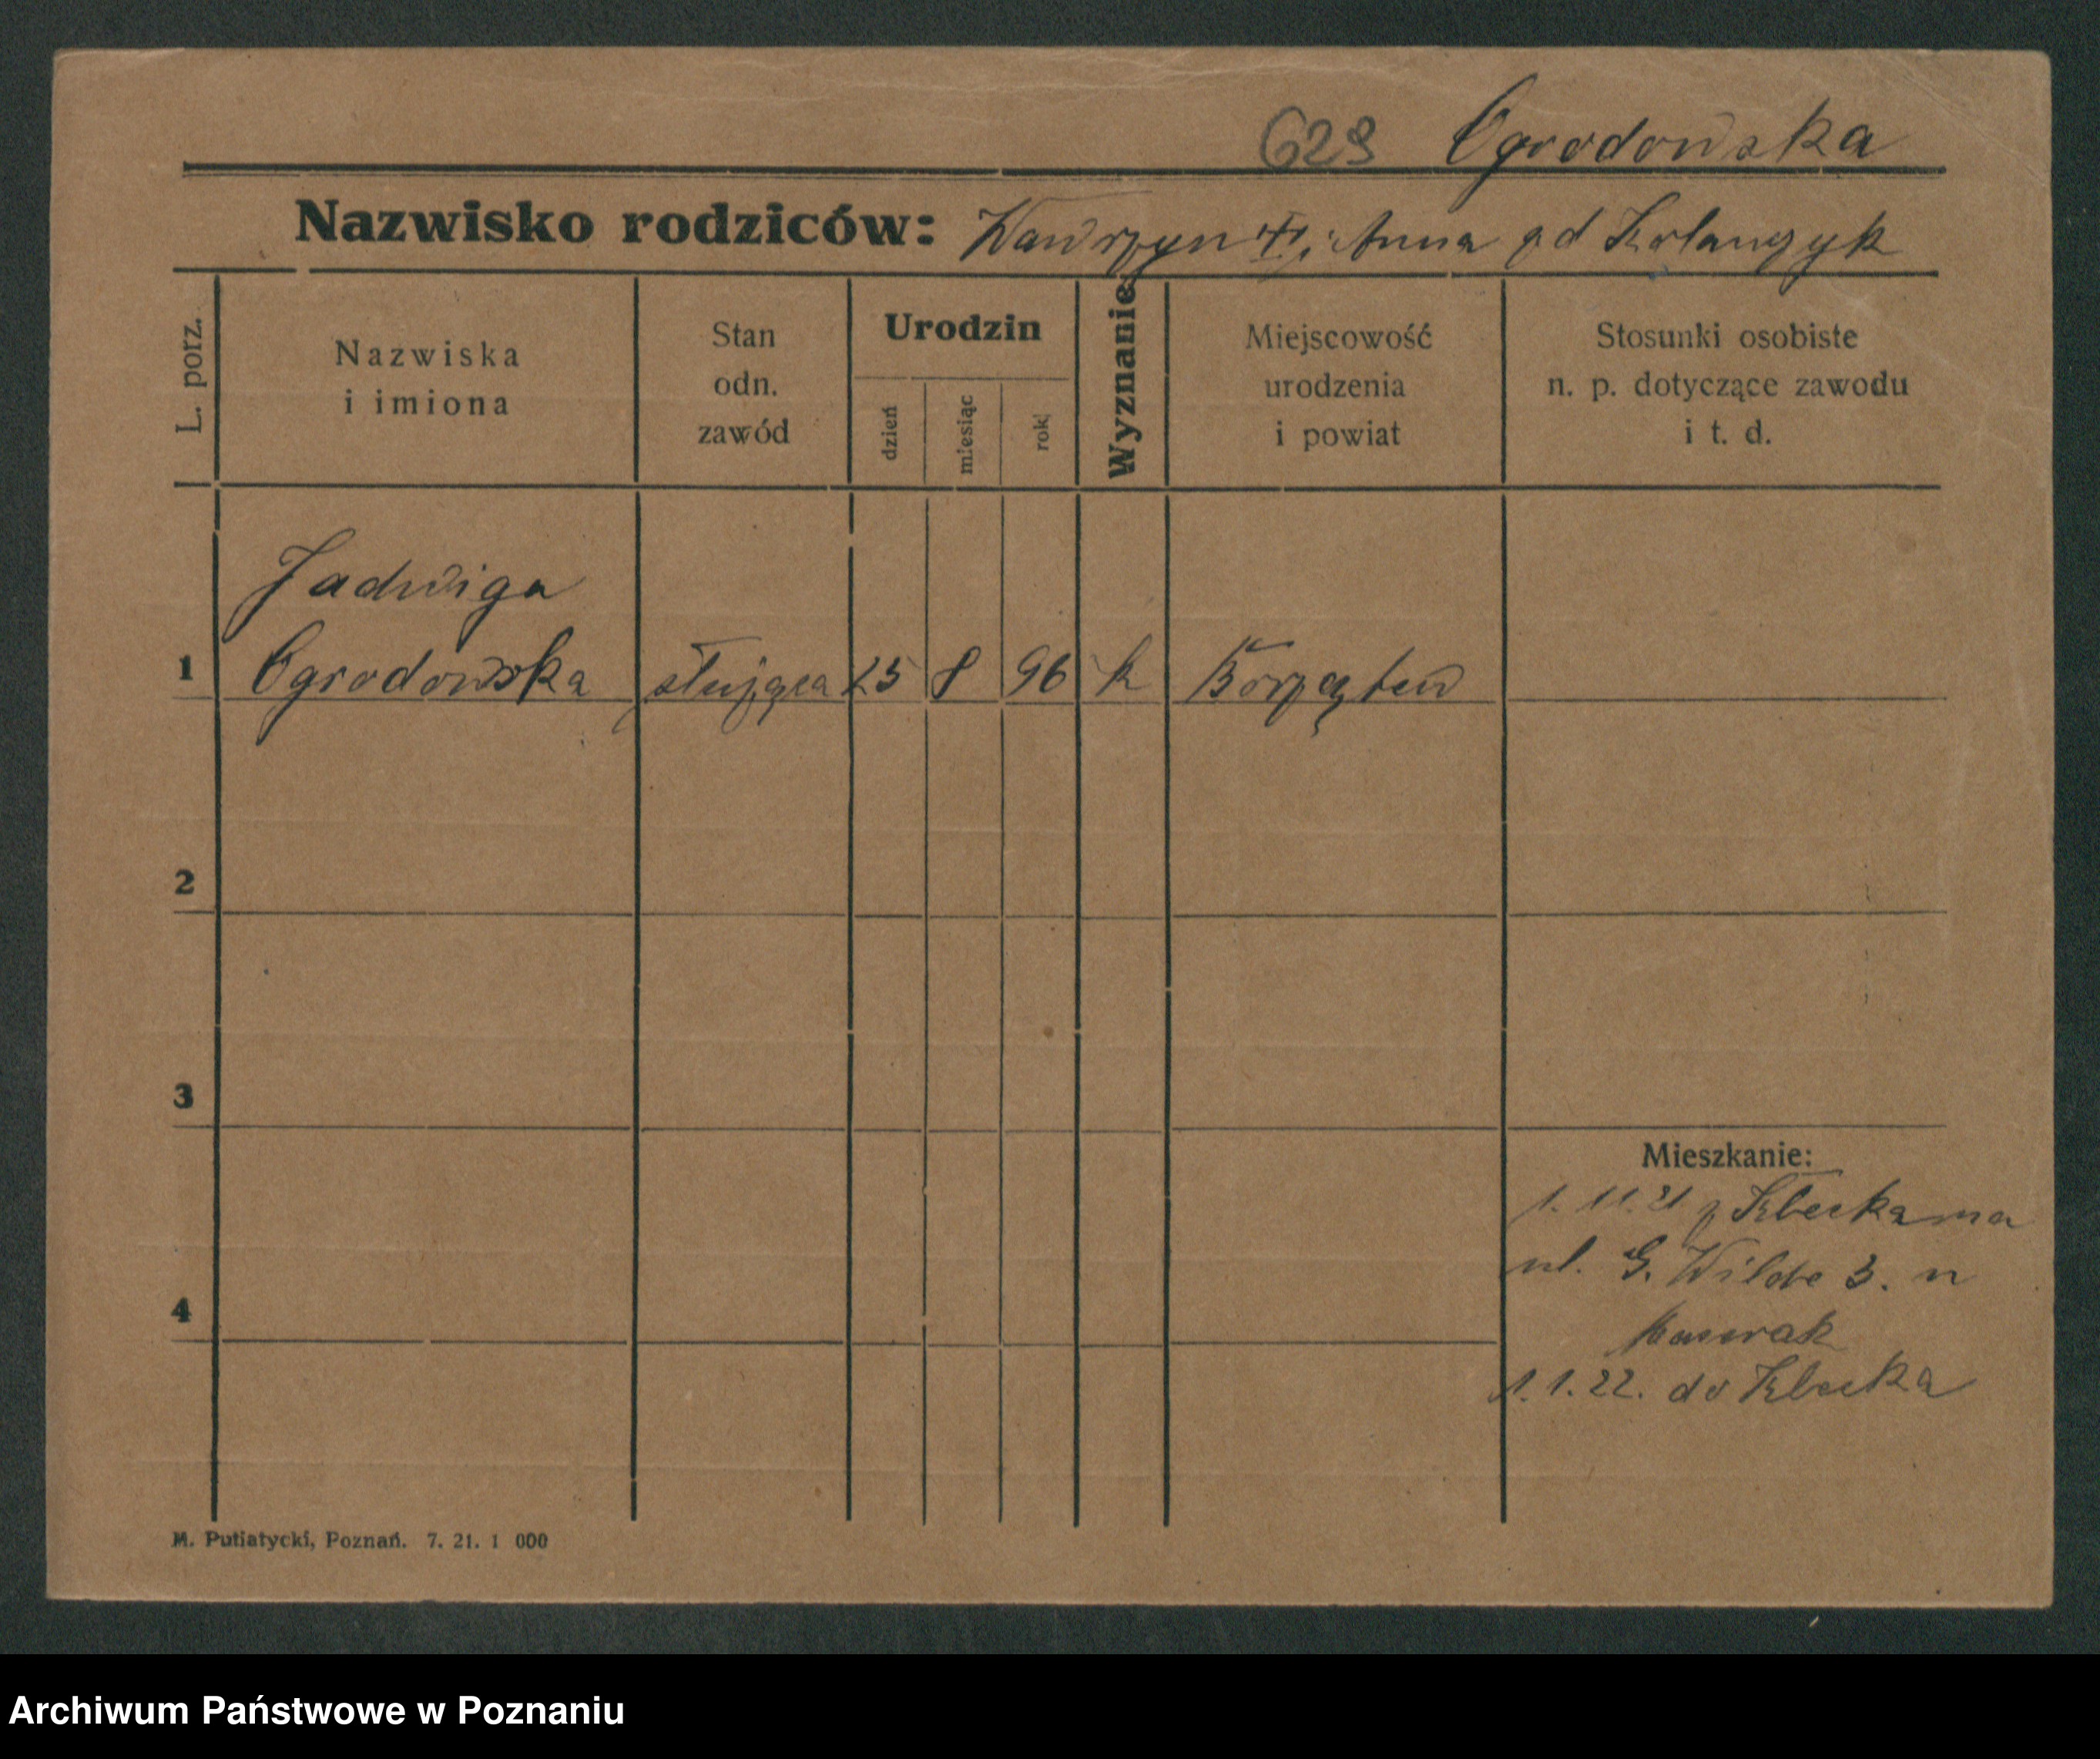 629 Ogrodowska
Nazwisko rodziców: Wawrzyn + i Anna zd Kolanczyk
L. porz.
Nazwiska
i imiona
Stan
odn.
zawód
Urodzin
dzień
miesiąc
rok
Wyznanie
Miejscowość
urodzenia
i powiat
Stosunki osobiste
n. p. dotyczące zawodu
i t. d.
Jadwiga
1 Ogrodowska służąca 25 8 96 k
2
3
Mieszkanie:
1. 11. 21 z Klecka na
ul. G. Wilde 3. u
4
1. 1. 22. do Klecka
M. Putiatycki, Poznań. 7. 21. 1 000
Archiwum Państwowe w Poznaniu